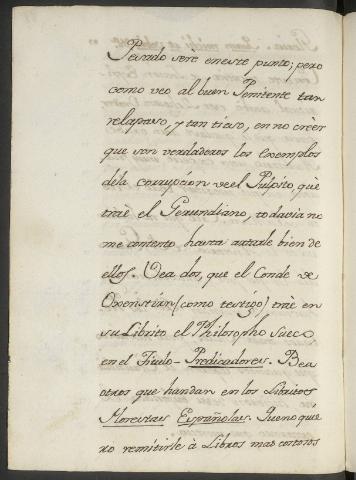 Pesado sere eneste punto; pero
como veo al buen Penitente tan
relapaso, y tan tieso, en no crèer
que son verdaderos los Exemplos
dela corrupcion de el Pulpito, què
traè el Gerundiano, todavia no
me contento hasta artarle bien de
ellos. Vea dos, que el Conde de
Oxenstirn (como testigo) traè en
su Librito el Philosopho Sueco
en el Titulo - Predicadores. Bea
otros que handan en los Libritos
Florestas Españolas. Queno quie
ro remitirle à Libros mas costosos